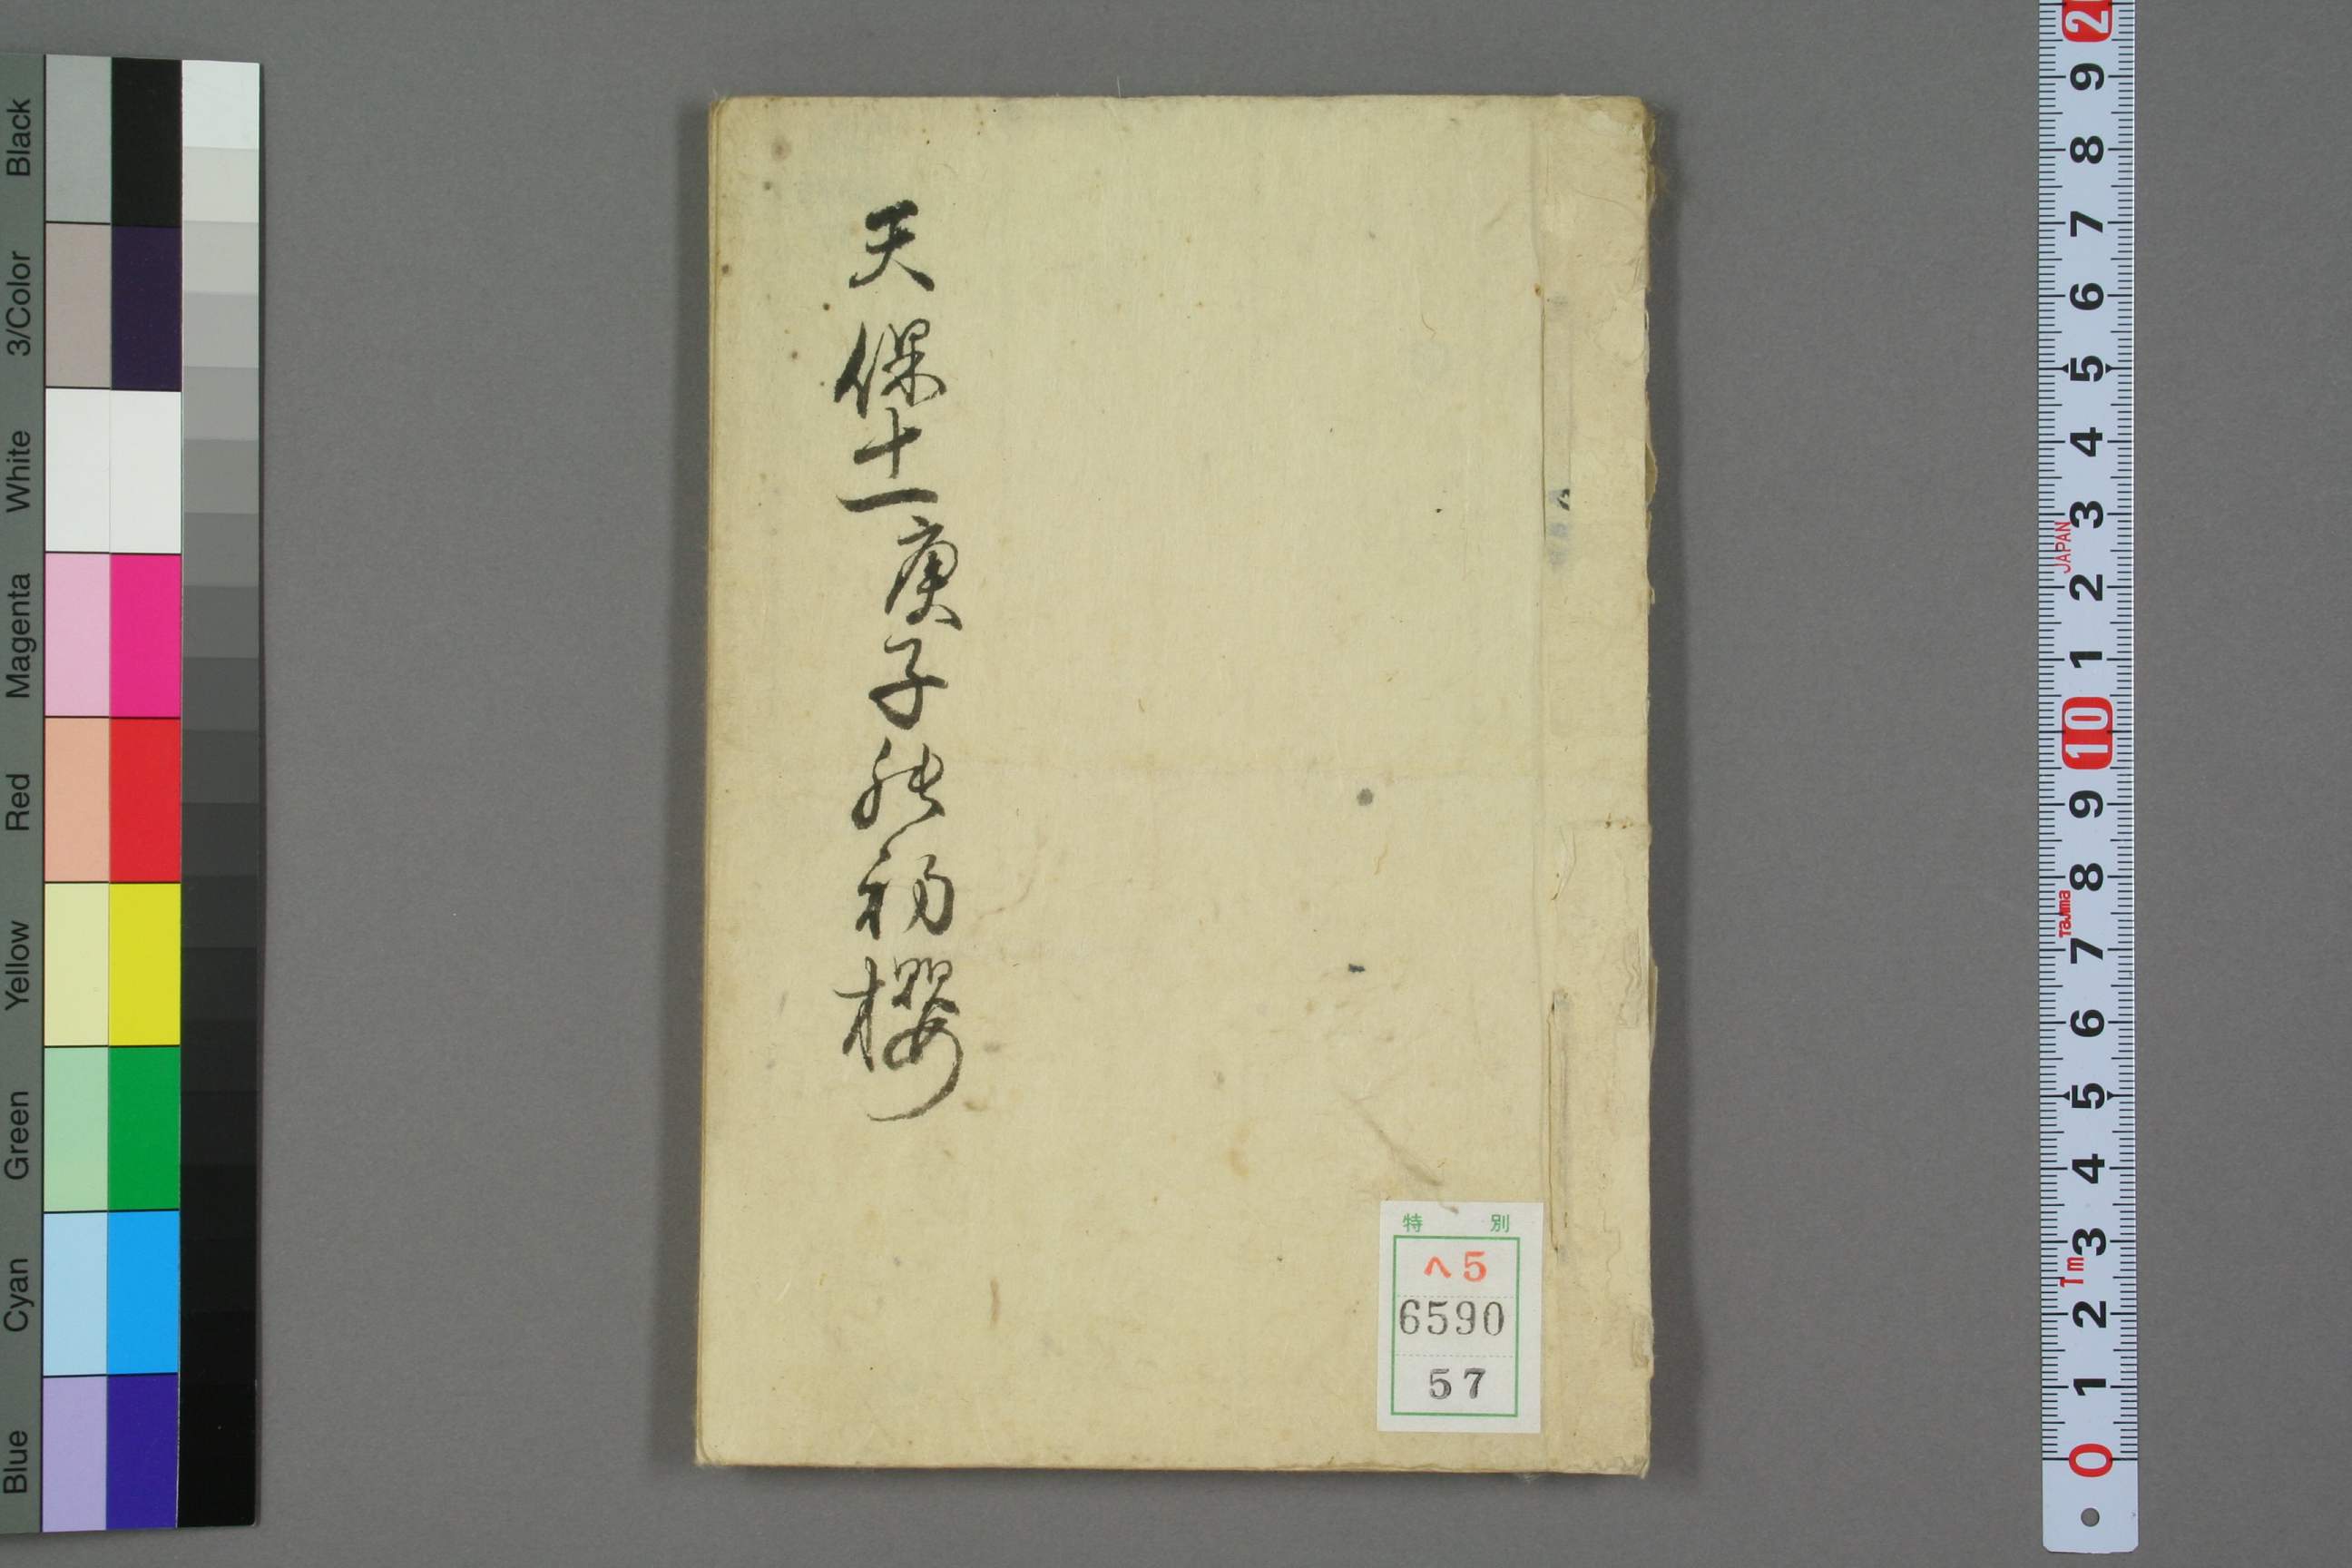 天保十一庚子能初櫻
特別
ヘ5
6590
57
Black
3/Color
White
Magenta
Red
Yellow
Green
Cyan
Blue
2
9
8
7
6
5
4
3
JAPAN
2
1
10
9
8
Tajima
7
6
5
4
3
1m
2
1
0